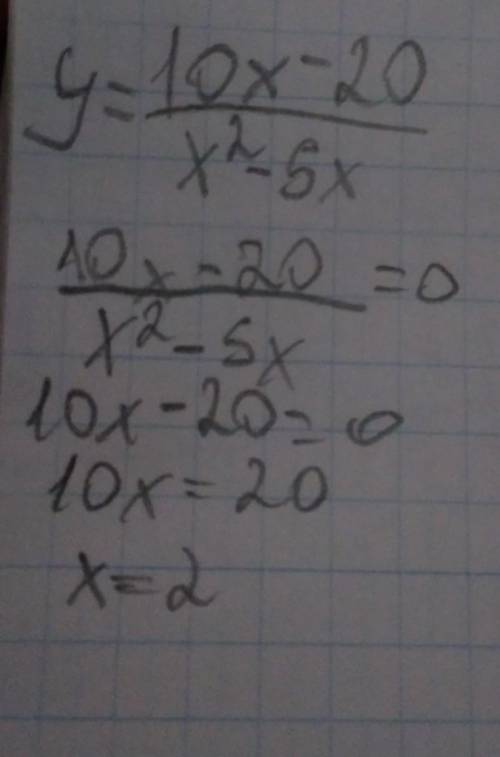 y = (10x - 20) / (x² - 5x)
(10x - 20) / (x² - 5x) = 0
10x - 20 = 0
10x = 20
x = 2